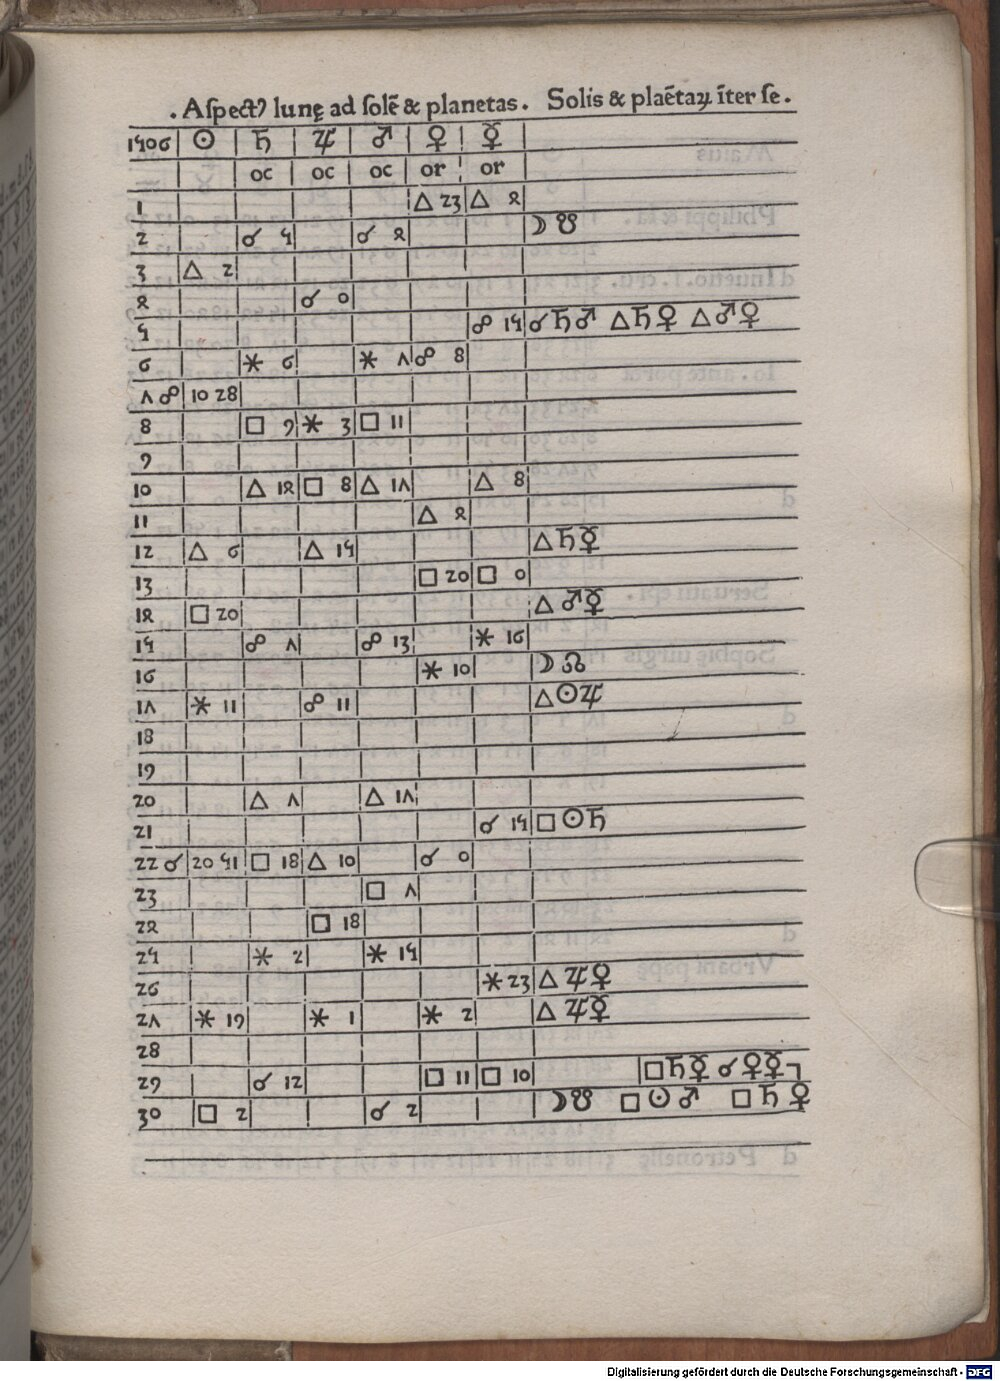 . Aſpectꝰ lunę ad ſolē & planetas . Solis & plaētaꝝ īter ſe .
1506 ☉ ♄ ♃ ♂ ♀ ☿
oc oc oc or or
1 △ 23 △ 4
2 ☌ 5 ☌ 4 ☽ ☋
3 △ 2
4 ☌ 0
5 ☍ 15 ☌ ♄ ♂ △ ♄ ♀ △ ♂ ♀
6 ⚹ 6 ⚹ 7 ☍ 8
7 ☍ 10 28
8 □ 9 ⚹ 3 □ 11
9
10 △ 14 □ 8 △ 17 △ 8
11 △ 4
12 △ 6 △ 15 △ ♄ ☿
13 □ 20 □ 0
14 □ 20 △ ♂ ☿
15 ☍ 7 ☍ 13 ⚹ 16
16 ⚹ 10 ☽ ☊
17 ⚹ 11 ☍ 11 △ ☉ ♃
18
19
20 △ 7 △ 17
21 ☌ 15 □ ☉ ♄
22 ☌ 20 51 □ 18 △ 10 ☌ 0
23 □ 7
24 □ 18
25 ⚹ 2 ⚹ 15
26 ⚹ 23 △ ♃ ♀
27 ⚹ 19 ⚹ 1 ⚹ 2 △ ♃ ☿
28
29 ☌ 12 □ 11 □ 10 □ ♄ ☿ ☌ ♀ ☿
30 □ 2 ☌ 2 ☽ ☋ □ ☉ ♂ □ ♄ ♀
Digitalisierung gefördert durch die Deutsche Forschungsgemeinschaft - DFG